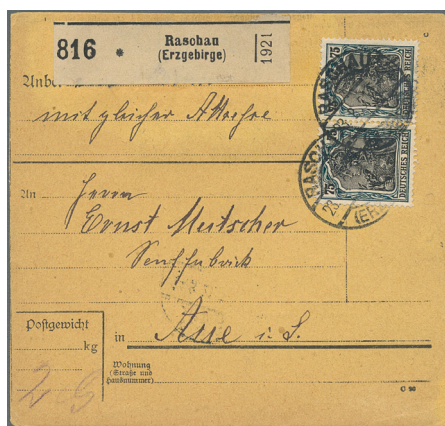 816 * Raschau
(Erzgebirge)
1921
75
75
DEUTSCHES REICH
RASCHAU
(ERZ
mit gleicher Adresse
An Herrn
Ernst
Senffabrik
in Aue i. S.
Postgewicht
kg
Wohnung
(Straße und
Hausnummer)
C 98